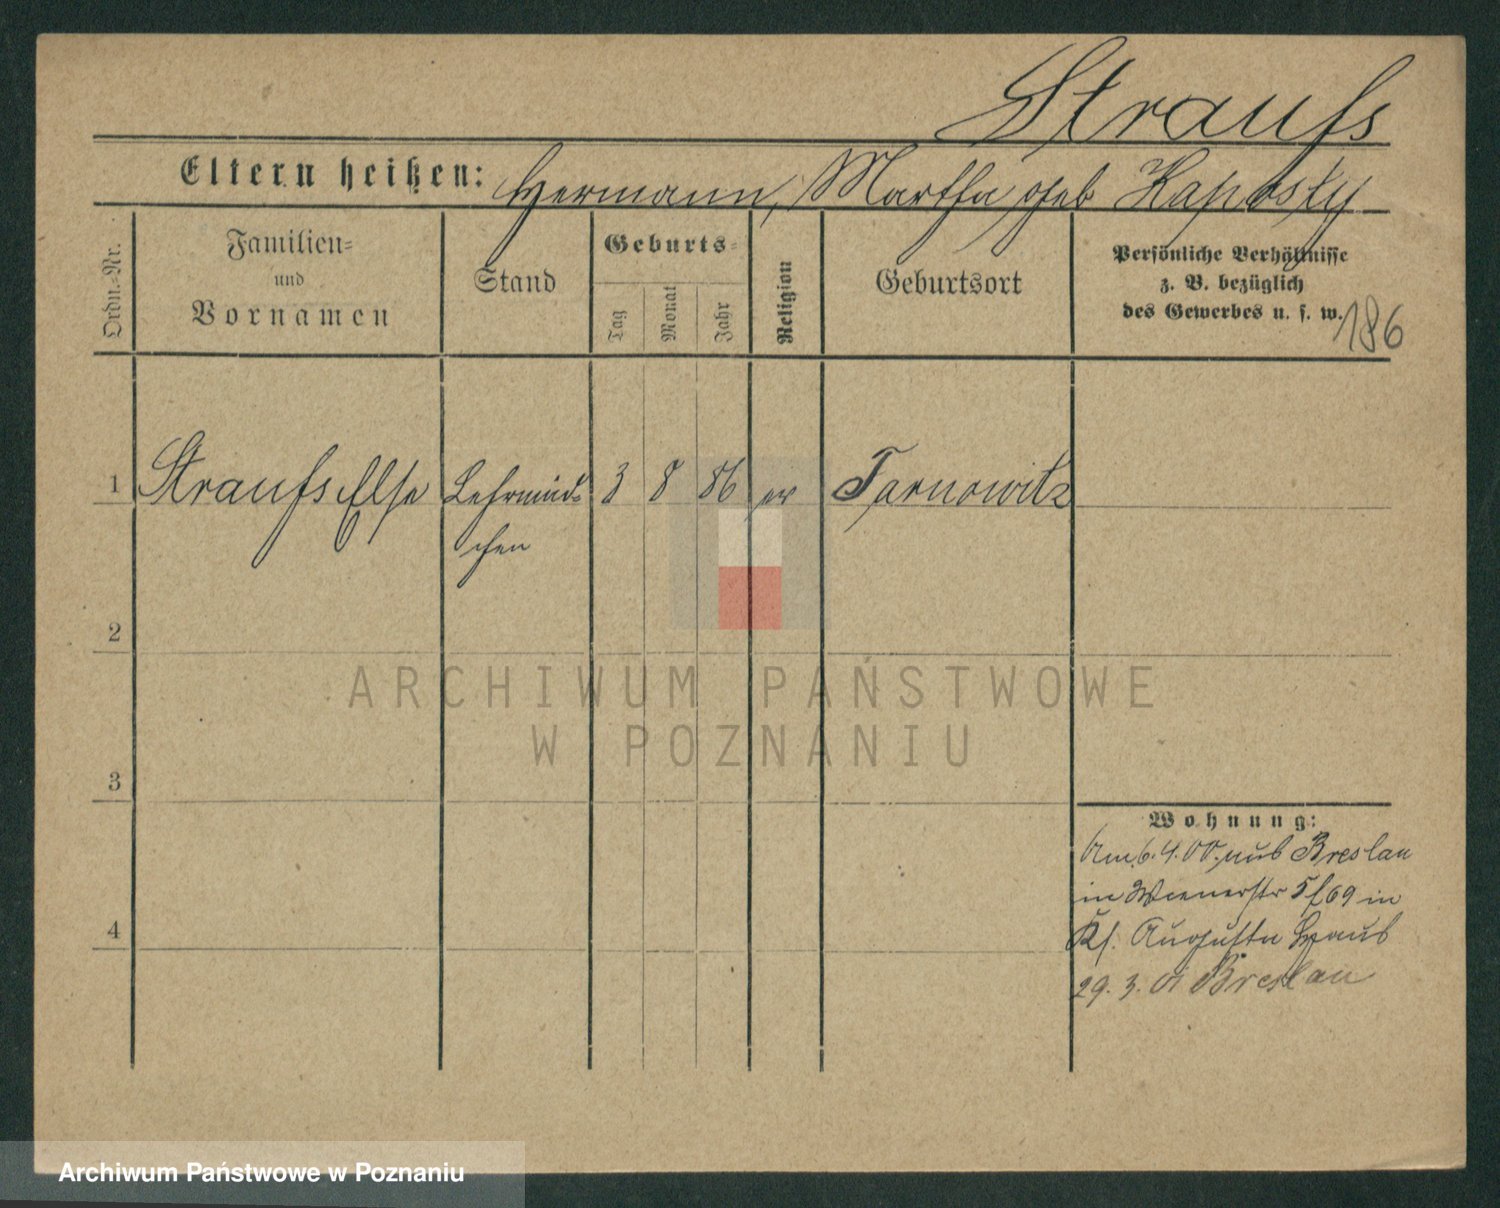 Straufs
Eltern heißen: Hermann, Martha geb Kaposty
Ordn.-Nr.
Familien-
und
Vornamen
Stand
Geburts-
Tag
Monat
Jahr
Religion
Geburtsort
Persönliche Verhältnisse
z. B. bezüglich
des Gewerbes u. s. w.
186
1 Straufs Else Lehrmäd- 3 8 86 ev Tarnowitz
chen
2
3
4
Wohnung:
Am 6.4.00. aus Breslau
in Wienerstr 5 f 69 in
Kf. Augusta Haus
29. 3. 01 Breslau
ARCHIWUM PAŃSTWOWE
W POZNANIU
Archiwum Państwowe w Poznaniu